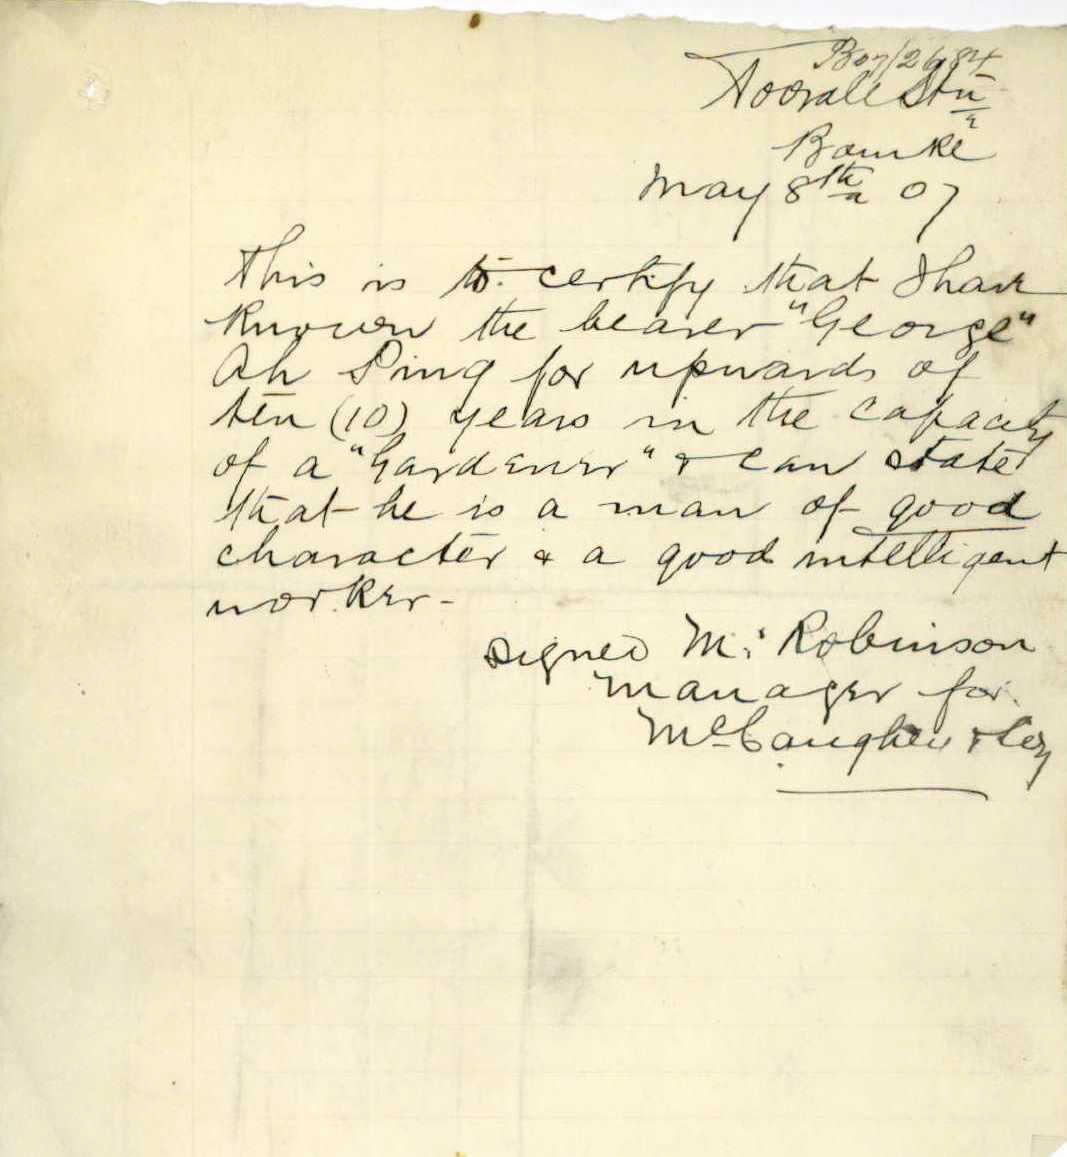 B07/2684
Toorale Stn
Bourke
May 8th 07
This is to certify that I have
known the bearer "George"
Ah Ping for upwards of
ten (10) years in the capacity
of a "Gardener" & can state
that he is a man of good
character & a good intelligent
worker-
signed M. Robinson
Manager for
McCaughey & Coy